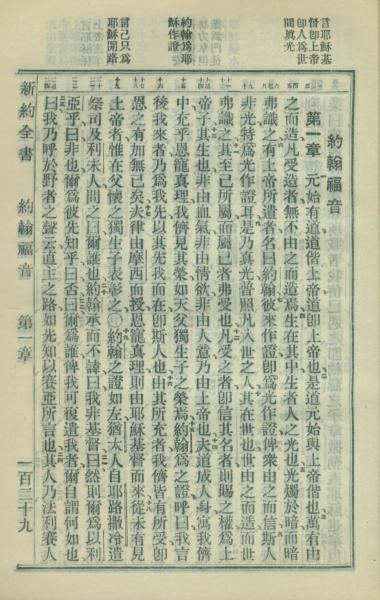 言耶穌基
督即上帝
即人爲世
間眞光
約翰爲耶
穌作證
言己只爲
耶穌開路
約翰福音
第一章 元始有道道偕上帝道卽上帝也是道元始與上帝偕也萬有由
之而造凡受造者無不由之而造焉生在其中生者人之光也光獨於暗而暗
弗識之有上帝所遣者名曰約翰彼來作證卽爲光作證俾衆由之而信斯人
非光特爲光作證耳是乃眞光普照凡入世之人其在世也世由之而造而世
弗識之其至己所屬而屬己者弗受也凡受之者卽信其名者則賜之權爲上
帝子其生也非由血氣非由情欲非由人意乃由上帝也夫道成人身寓我儕
中充乎恩寵眞理我儕見其榮如天父獨生子之榮焉約翰爲之證呼曰我言
後我來者乃爲我先以其先我而在卽斯人也由其所充者我儕皆有所受卽
恩之有加無已矣夫律由摩西而授恩寵眞理則由耶穌基督而來從未有見
上帝者惟在父懷之獨生子表彰之○約翰之證如左猶太人自耶路撒冷遣
祭司及利未人問之曰爾誰也約翰承而不諱曰我非基督曰然則爾爲以利
亞乎曰非也爾爲彼先知乎曰否曰爾爲誰俾我可復遣我者爾自謂何如也
曰我乃呼於野者之聲云直主之路如先知以賽亞所言也其人乃法利賽人
新約全書 約翰福音 第一章 一百三十九